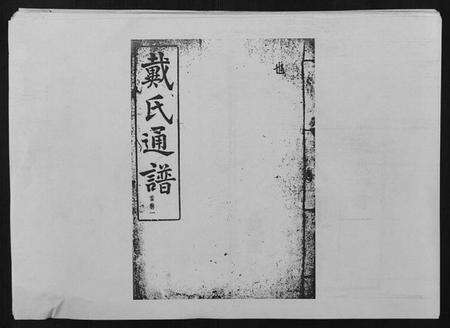 戴氏通譜
卷一